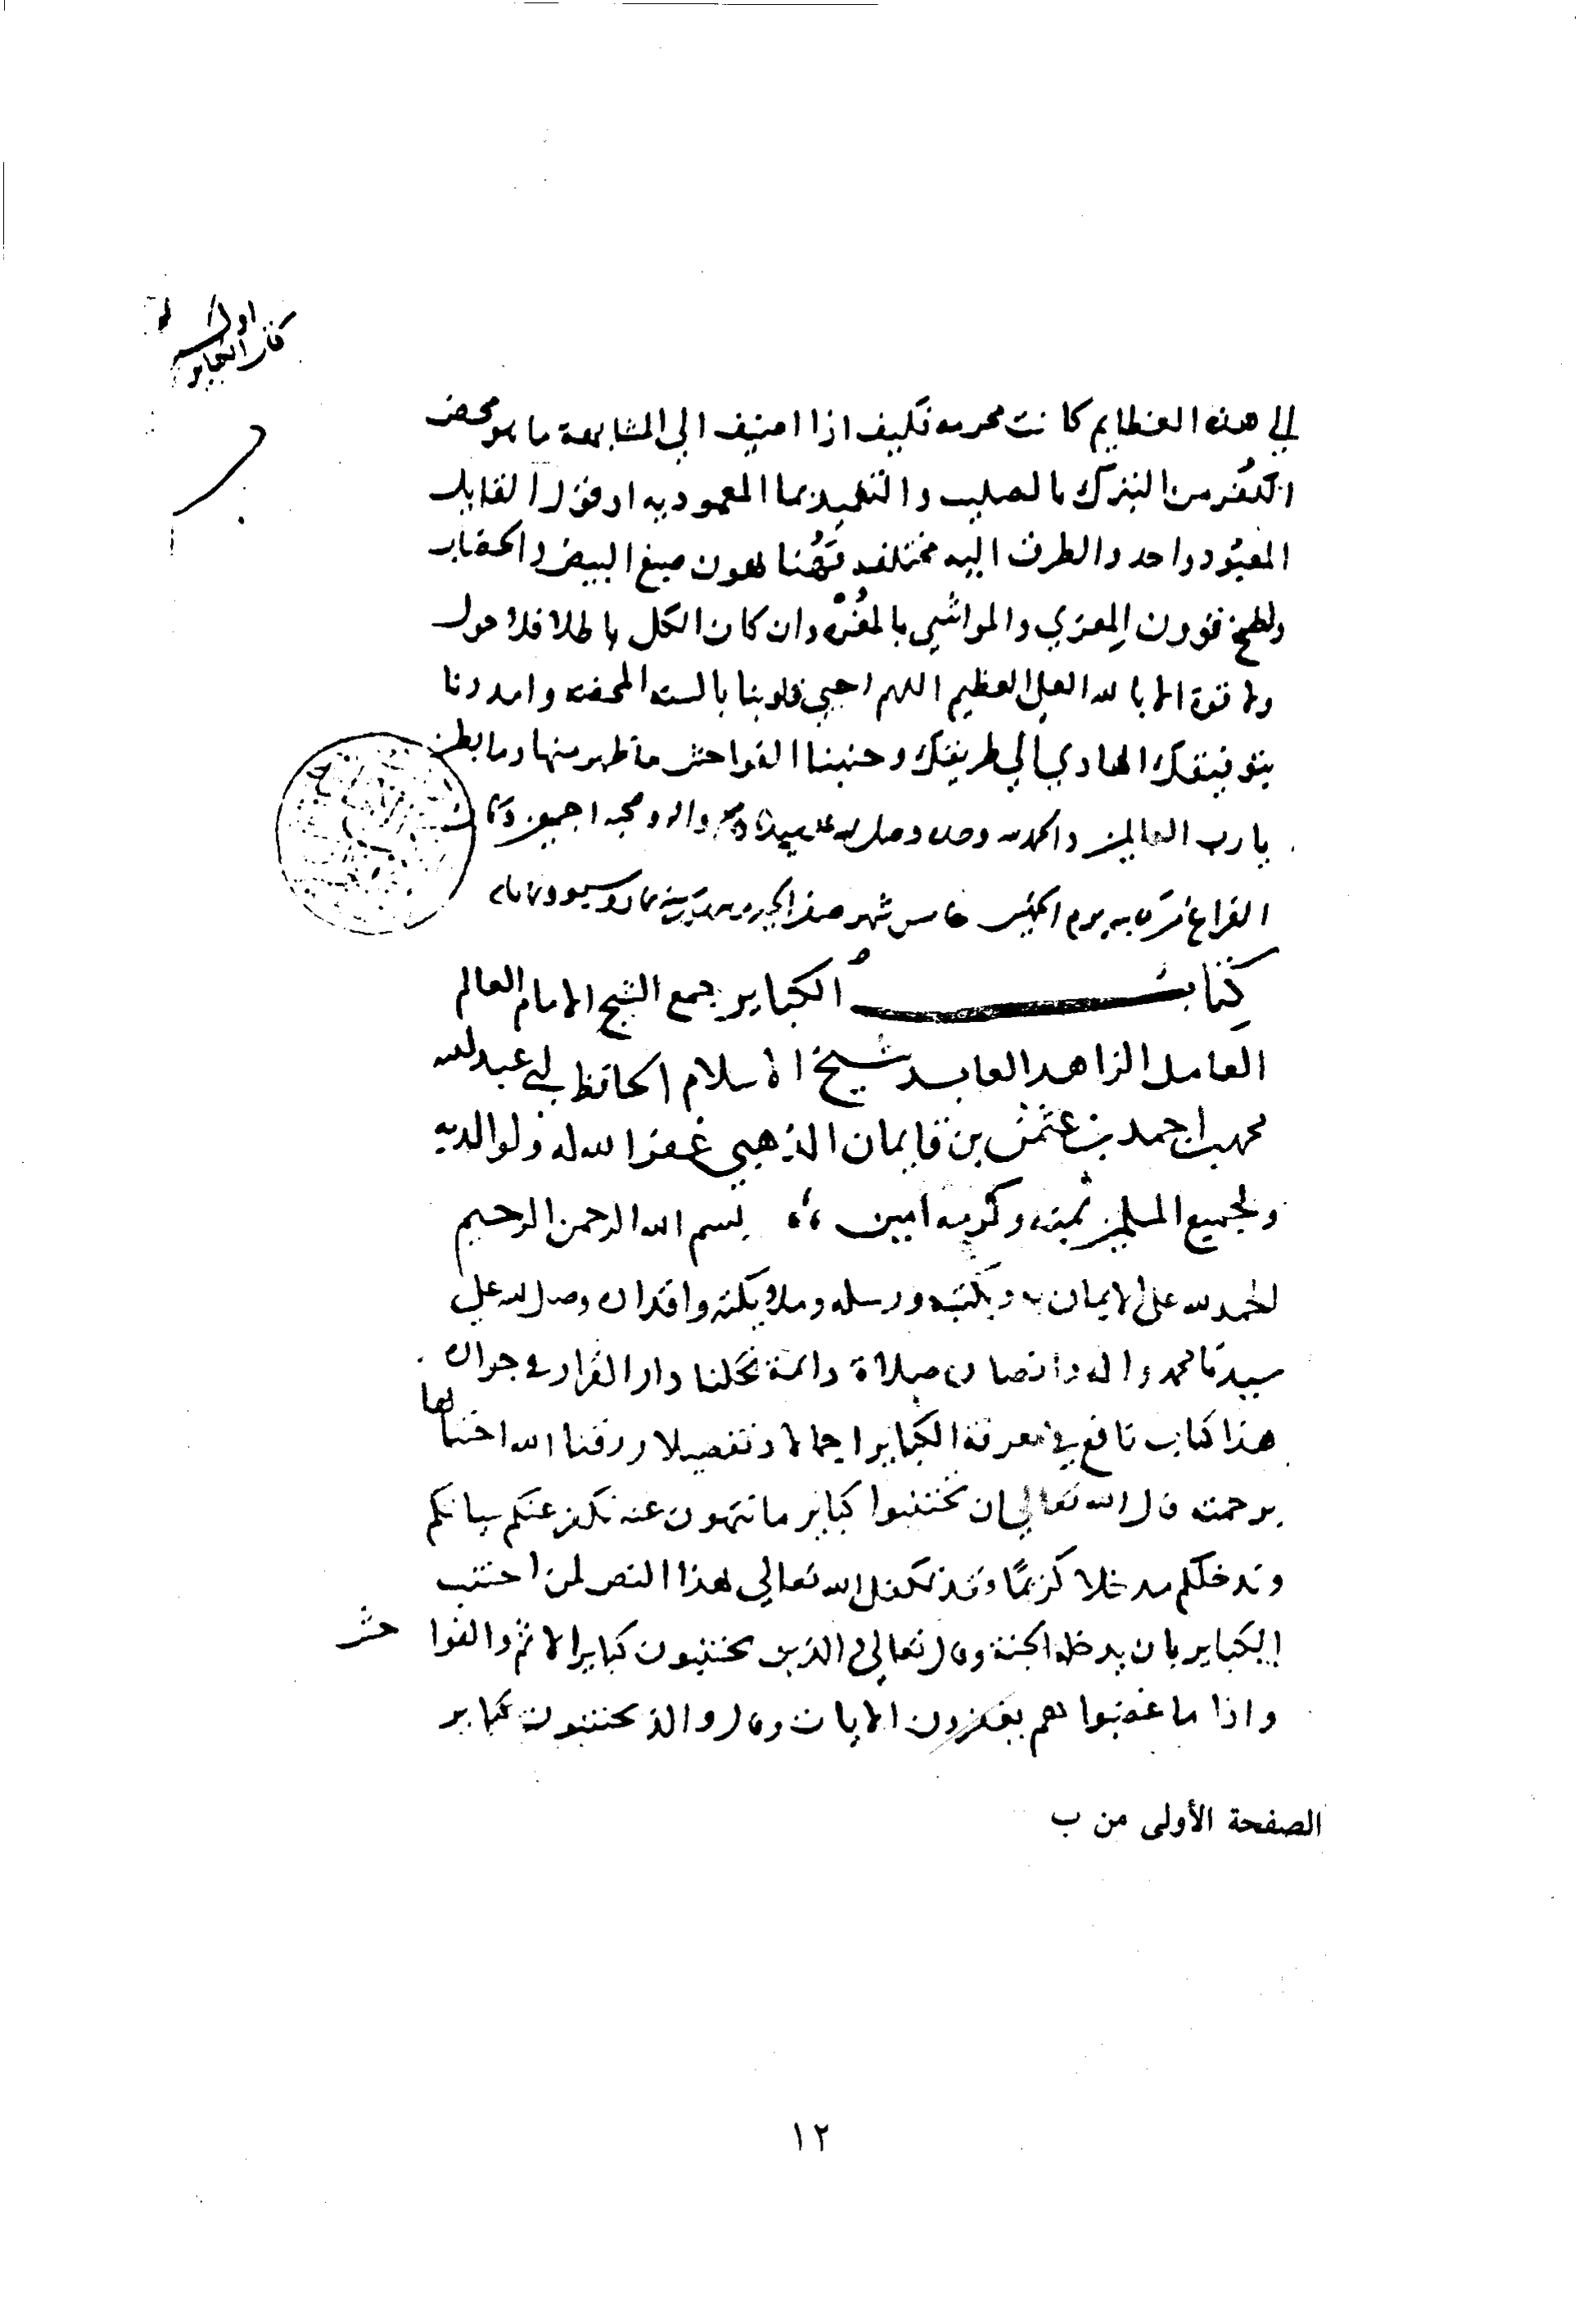 اول
كتاب الكباير
الي هذه العظايم كانت محرمه فكيف اذا اضيف الي المشابهة ما هو محض
الكفر من التبرك بالصليب والتغميذ بما المعموديه او قول القايل
المعبود واحد والطرق اليه مختلفه فهنا لهون صبغ البيض والحضاب
ولطخ قرون المعزي والمواشي بالمغره وان كان الكل باطلا فلا حول
ولا قوة الا بالله العلي العظيم اللهم احيي قلوبنا بالسنه المحضه وامددنا
بتوفيقك الهادي الي طريقك وجنبنا الفواحش ما ظهر منها وما بطن
يا رب العالمين والحمد لله وحده وصلى الله على سيدنا محمد واله وصحبه اجمعين وكان
الفراغ من يوم الخميس خامس شهر صفر
كتاب الكباير جمع الشيخ الامام العالم
العامل الزاهد العابد شيخ الاسلام الحافظ ابي عبد الله
محمد بن احمد بن عثمن بن قايمان الذهبي غفر الله له ولوالديه
ولجميع المسلمين بمنه وكرمه امين بسم الله الرحمن الرحيم
الحمد لله على الايمان به وبكتبه ورسله وملايكته واقداره وصلى الله على
سيدنا محمد واله وانصاره صلاة دائمة تحلنا دار القرار في جواره
هذا كتاب نافع في معرفة الكباير اجمالا وتفصيلا رزقنا الله اجتنابها
برحمته قال الله تعالي ان تجتنبوا كباير ما تنهون عنه نكفر عنكم سياتكم
وندخلكم مدخلا كريما وقد تكفل الله تعالي بهذا النص لمن اجتنب
الكباير بان يدخله الجنة وقال تعالي والذين يجتنبون كباير الاثم والفواحش
واذا ما غضبوا هم يغفرون الايات وقال والذ يجتنبون كباير
الصفحة الأولى من ب
١٢